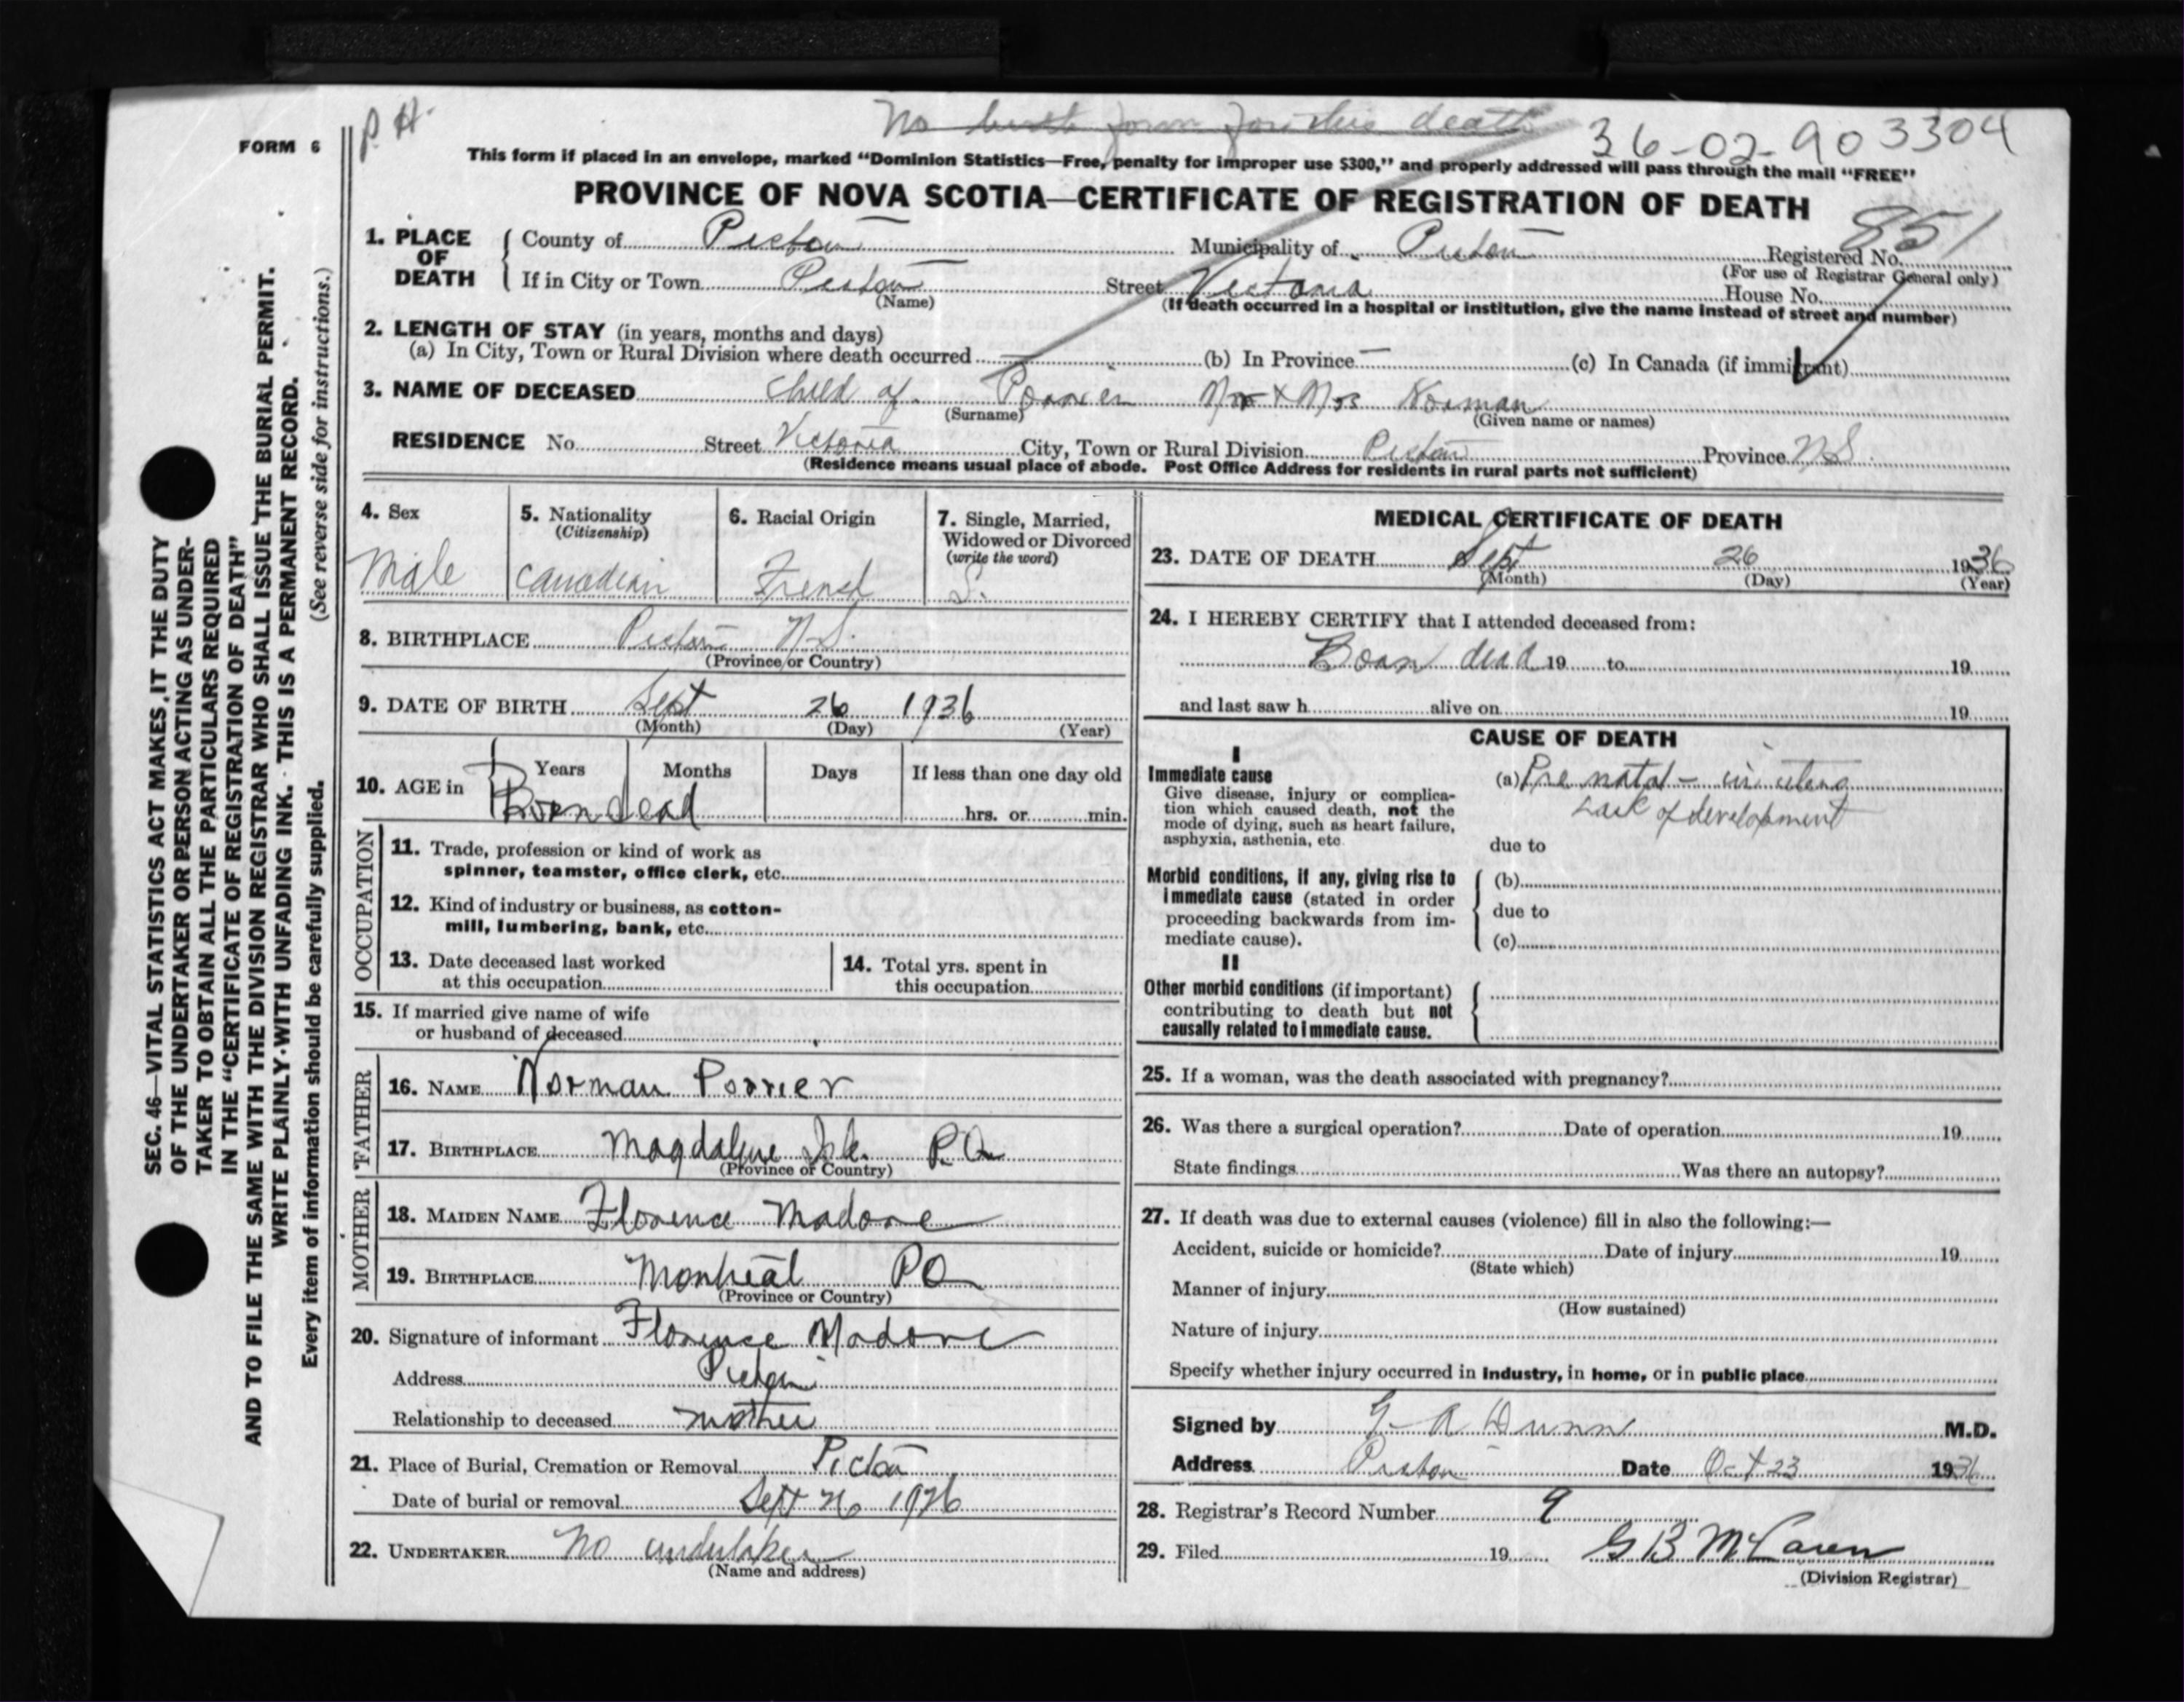 P. H.
No birth form for this death
36-02-903304
FORM 6
This form if placed in an envelope, marked "Dominion Statistics—Free, penalty for improper use $300," and properly addressed will pass through the mail "FREE"
PROVINCE OF NOVA SCOTIA—CERTIFICATE OF REGISTRATION OF DEATH
851
1. PLACE OF DEATH County of Pictou Municipality of Pictou Registered No.
(For use of Registrar General only)
If in City or Town Pictou Street Victoria House No.
(Name) (If death occurred in a hospital or institution, give the name instead of street and number)
2. LENGTH OF STAY (in years, months and days)
(a) In City, Town or Rural Division where death occurred — (b) In Province — (c) In Canada (if immigrant)
3. NAME OF DECEASED Child of Poirier Mr & Mrs Norman
(Surname) (Given name or names)
RESIDENCE No. Street Victoria City, Town or Rural Division Pictou Province N.S.
(Residence means usual place of abode. Post Office Address for residents in rural parts not sufficient)
4. Sex
Male
5. Nationality
(Citizenship)
Canadian
6. Racial Origin
French
7. Single, Married,
Widowed or Divorced
(write the word)
S.
8. BIRTHPLACE Pictou N.S.
(Province or Country)
9. DATE OF BIRTH Sept 26 1936
(Month) (Day) (Year)
10. AGE in Years Months Days If less than one day old
Born dead hrs. or min.
OCCUPATION
11. Trade, profession or kind of work as
spinner, teamster, office clerk, etc.
12. Kind of industry or business, as cotton-
mill, lumbering, bank, etc.
13. Date deceased last worked
at this occupation
14. Total yrs. spent in
this occupation
15. If married give name of wife
or husband of deceased
FATHER
16. NAME Norman Poirier
17. BIRTHPLACE Magdalyne Isle. P.Q.
(Province or Country)
MOTHER
18. MAIDEN NAME Florence Madore
19. BIRTHPLACE Montreal PQ
(Province or Country)
20. Signature of informant Florence Madore
Address Pictou
Relationship to deceased mother
21. Place of Burial, Cremation or Removal Pictou
Date of burial or removal Sept 26 1936
22. UNDERTAKER No undertaker
(Name and address)
MEDICAL CERTIFICATE OF DEATH
23. DATE OF DEATH Sept 26 1936
(Month) (Day) (Year)
24. I HEREBY CERTIFY that I attended deceased from:
Born dead 19 to 19
and last saw h alive on 19
CAUSE OF DEATH
I
Immediate cause
Give disease, injury or complica-
tion which caused death, not the
mode of dying, such as heart failure,
asphyxia, asthenia, etc.
(a) Pre natal - in utero
Lack of development
due to
Morbid conditions, if any, giving rise to
immediate cause (stated in order
proceeding backwards from im-
mediate cause).
(b)
due to
(c)
II
Other morbid conditions (if important)
contributing to death but not
causally related to immediate cause.
25. If a woman, was the death associated with pregnancy?
26. Was there a surgical operation? Date of operation 19
State findings Was there an autopsy?
27. If death was due to external causes (violence) fill in also the following:—
Accident, suicide or homicide? Date of injury 19
(State which)
Manner of injury
(How sustained)
Nature of injury
Specify whether injury occurred in industry, in home, or in public place
Signed by G A Dunn M.D.
Address Pictou Date Oct 23 1936
28. Registrar's Record Number 9
29. Filed 19 G B McLaren
(Division Registrar)
SEC. 46—VITAL STATISTICS ACT MAKES IT THE DUTY
OF THE UNDERTAKER OR PERSON ACTING AS UNDER-
TAKER TO OBTAIN ALL THE PARTICULARS REQUIRED
IN THE "CERTIFICATE OF REGISTRATION OF DEATH"
AND TO FILE THE SAME WITH THE DIVISION REGISTRAR WHO SHALL ISSUE THE BURIAL PERMIT.
WRITE PLAINLY WITH UNFADING INK. THIS IS A PERMANENT RECORD.
Every item of information should be carefully supplied. (See reverse side for instructions.)